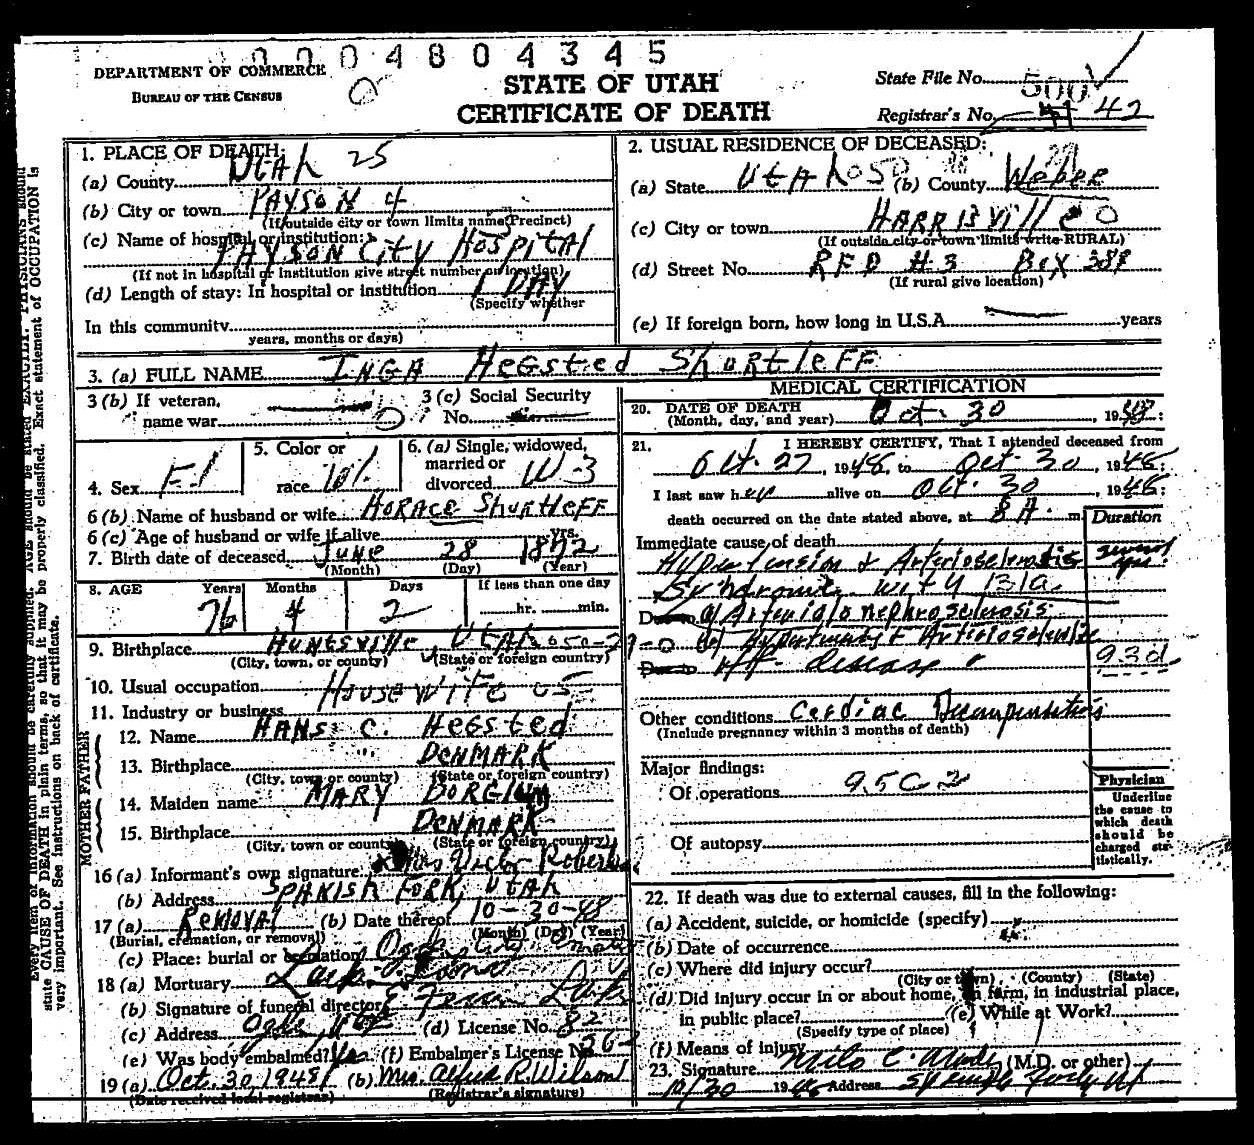 0004804345
DEPARTMENT OF COMMERCE
BUREAU OF THE CENSUS
STATE OF UTAH
CERTIFICATE OF DEATH
State File No. 500
Registrar's No. 42
1. PLACE OF DEATH:
(a) County UTAH 25
(b) City or town PAYSON 4
(If outside city or town limits name Precinct)
(c) Name of hospital or institution:
PAYSON CITY HOSPITAL
(If not in hospital or institution give street number or location)
(d) Length of stay: In hospital or institution 1 DAY
(Specify whether
In this community
years, months or days)
2. USUAL RESIDENCE OF DECEASED:
(a) State UTAH 050 (b) County WEBER
(c) City or town HARRISVILLE 0
(If outside city or town limits write RURAL)
(d) Street No. RFD #3 BOX 388
(If rural give location)
(e) If foreign born, how long in U.S.A. years
3. (a) FULL NAME INGA HEGSTED SHURTLEFF
3 (b) If veteran,
name war
3 (c) Social Security
No.
4. Sex F-1
5. Color or
race W
6. (a) Single, widowed,
married or
divorced W-3
6 (b) Name of husband or wife HORACE SHURTLEFF
6 (c) Age of husband or wife if alive yrs.
7. Birth date of deceased JUNE 28 1872
(Month) (Day) (Year)
8. AGE Years Months Days If less than one day
76 4 2 hr. min.
9. Birthplace HUNTSVILLE UTAH 050-2
(City, town, or county) (State or foreign country)
10. Usual occupation HOUSEWIFE 05
11. Industry or business
FATHER
12. Name HANS C. HEGSTED
13. Birthplace DENMARK
(City, town or county) (State or foreign country)
MOTHER
14. Maiden name MARY BORGLUM
15. Birthplace DENMARK
(City, town or county) (State or foreign country)
16 (a) Informant's own signature Mrs Victor Robertson
(b) Address SPANISH FORK, UTAH
17 (a) REMOVAL (b) Date thereof 10-30-48
(Burial, cremation, or removal) (Month) (Day) (Year)
(c) Place: burial or cremation Ogden City
18 (a) Mortuary
(b) Signature of funeral director
(c) Address Ogden, Ut (d) License No. 82
(e) Was body embalmed? Yes (f) Embalmer's License No.
19 (a) Oct. 30, 1948 (b) Mrs. Alfred R. Wilson
(Date received local registrar) (Registrar's signature)
MEDICAL CERTIFICATION
20. DATE OF DEATH
(Month, day, and year) Oct. 30, 1948:
21. I HEREBY CERTIFY, That I attended deceased from
Oct. 27, 1948, to Oct. 30, 1948:
I last saw her alive on Oct. 30, 1948:
death occurred on the date stated above, at 8 A. m.
Duration
Immediate cause of death
Hypertension & Arteriosclerotic several yrs.
Syndrome with 131a
a) Arteriolonephrosclerosis
b) Hypertensive & Arteriosclerotic
Hrt disease 93d
Other conditions Cardiac Decompensation
(Include pregnancy within 3 months of death)
Major findings:
Of operations 95C2
Of autopsy
Physician
Underline
the cause to
which death
should be
charged sta-
tistically.
22. If death was due to external causes, fill in the following:
(a) Accident, suicide, or homicide (specify)
(b) Date of occurrence
(c) Where did injury occur?
(City or town) (County) (State)
(d) Did injury occur in or about home, on farm, in industrial place,
in public place? (e) While at Work?
(Specify type of place)
(f) Means of injury
23. Signature Milo C. Moody (M.D. or other)
10/30 1948 Address Spanish Fork, Ut
Every item of information should be carefully supplied. AGE should be stated EXACTLY. PHYSICIANS should
state CAUSE OF DEATH in plain terms, so that it may be properly classified. Exact statement of OCCUPATION is
very important. See instructions on back of certificate.